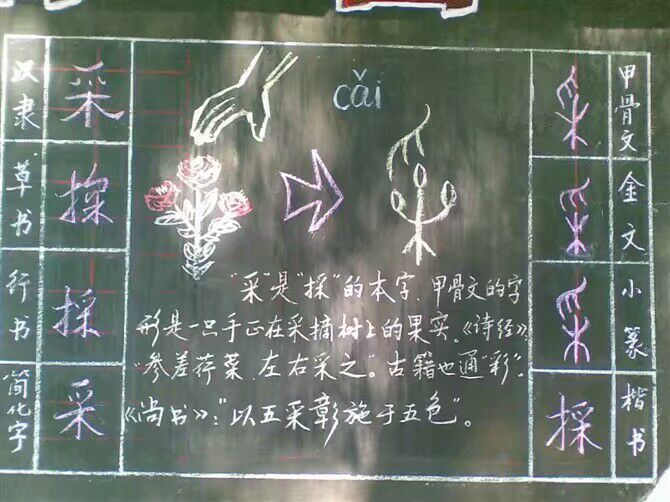 汉隶
采
草书
採
行书
採
简化字
采
cǎi
"采"是"採"的本字,甲骨文的字
形是一只手正在采摘树上的果实。《诗经》:
"参差荇菜,左右采之"。古籍也通"彩"。
《尚书》:"以五采彰施于五色"。
甲骨文
金文
小篆
楷书
採